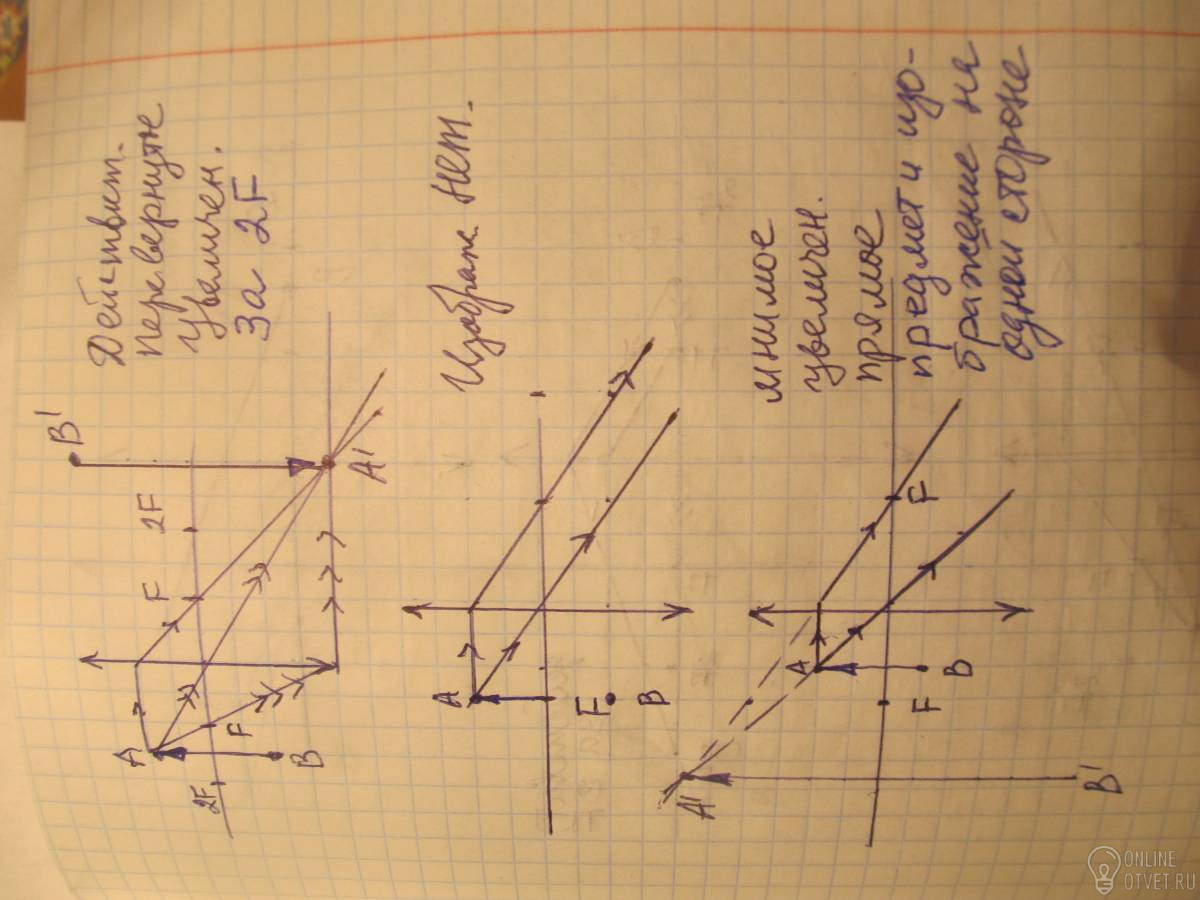 Действит.
перевернутое
увеличен.
За 2F
A
B
2F
F
F
2F
B'
A'
Изображ. нет.
A
F
B
мнимое
увеличен.
прямое
предмет и изо-
бражение на
одной стороне
A'
B'
A
B
F
F
ONLINE
OTVET.RU